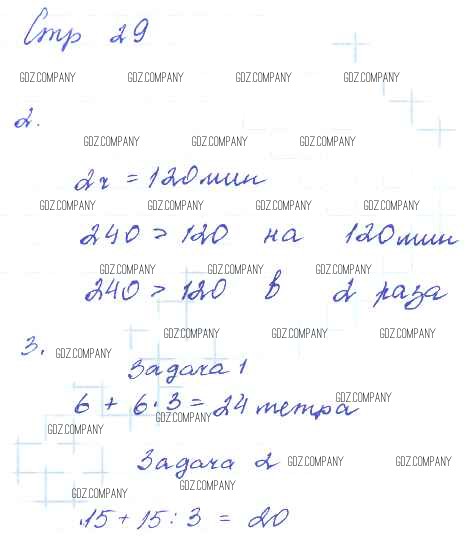 Стр 29
GDZ.COMPANY GDZ.COMPANY GDZ.COMPANY GDZ.COMPANY
2.
GDZ.COMPANY GDZ.COMPANY GDZ.COMPANY
2ч = 120 мин
GDZ.COMPANY GDZ.COMPANY GDZ.COMPANY GDZ.COMPANY
240 > 120 на 120 мин
GDZ.COMPANY GDZ.COMPANY GDZ.COMPANY
240 > 120 в 2 раза
GDZ.COMPANY GDZ.COMPANY GDZ.COMPANY
3. GDZ.COMPANY
Задача 1
GDZ.COMPANY
6 + 6 · 3 = 24 метра
GDZ.COMPANY
GDZ.COMPANY
Задача 2 GDZ.COMPANY GDZ.COMPANY
GDZ.COMPANY GDZ.COMPANY
15 + 15 : 3 = 20